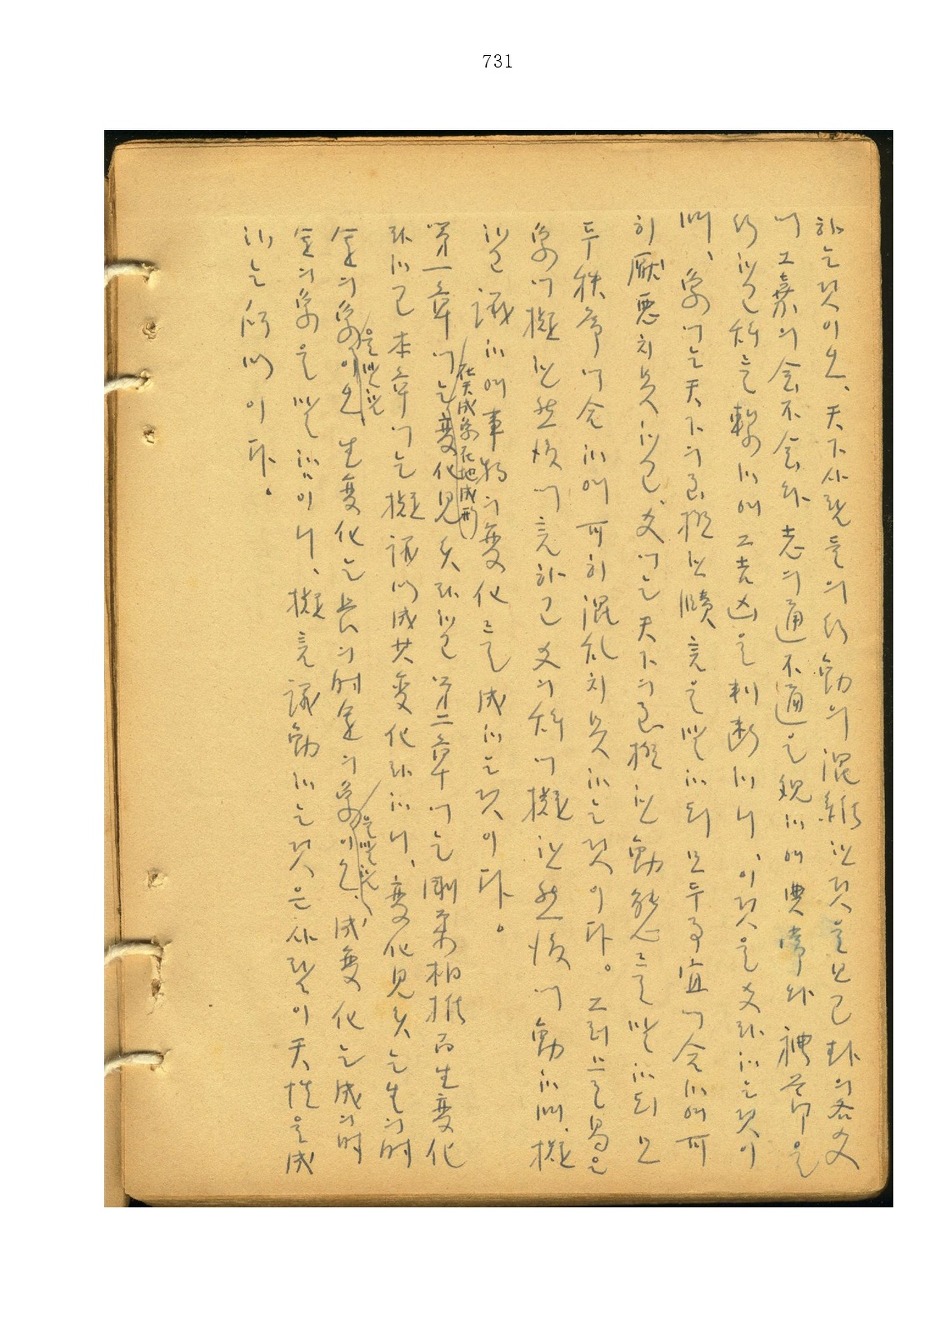 731
하는것이오、天下사람들의行動의混雜한것을보고卦의各爻
에그嘉의会不会와志의通不通을観하여典常과神節을
行하고辭를繫하여그吉凶을判斷하니、이것을爻라하는것이
며、象에는天下의至擬한賾言을말하되모두事宜에合하여可
히厭惡치못하고、爻에는天下의至擬한動能를말하되모
두秩序에合하여可히混乱치못하는것이다。그러므로易은
象에擬한然後에言하고爻의辭에擬한然後에動하며、擬
하고議하여事物의變化를成하는것이다。
第一章에는(在天成象在地成形)變化見矣라하고第二章에는剛柔相推而生變化
라하고本章에는擬議以成其變化라하니、變化見矣는生의时
金의象(을말함)이오生變化는長의时金의象(을말함)이오、成變化는成의时
金의象을말함이니、擬言議動하는것은사람이天性을成
하는所以이다。